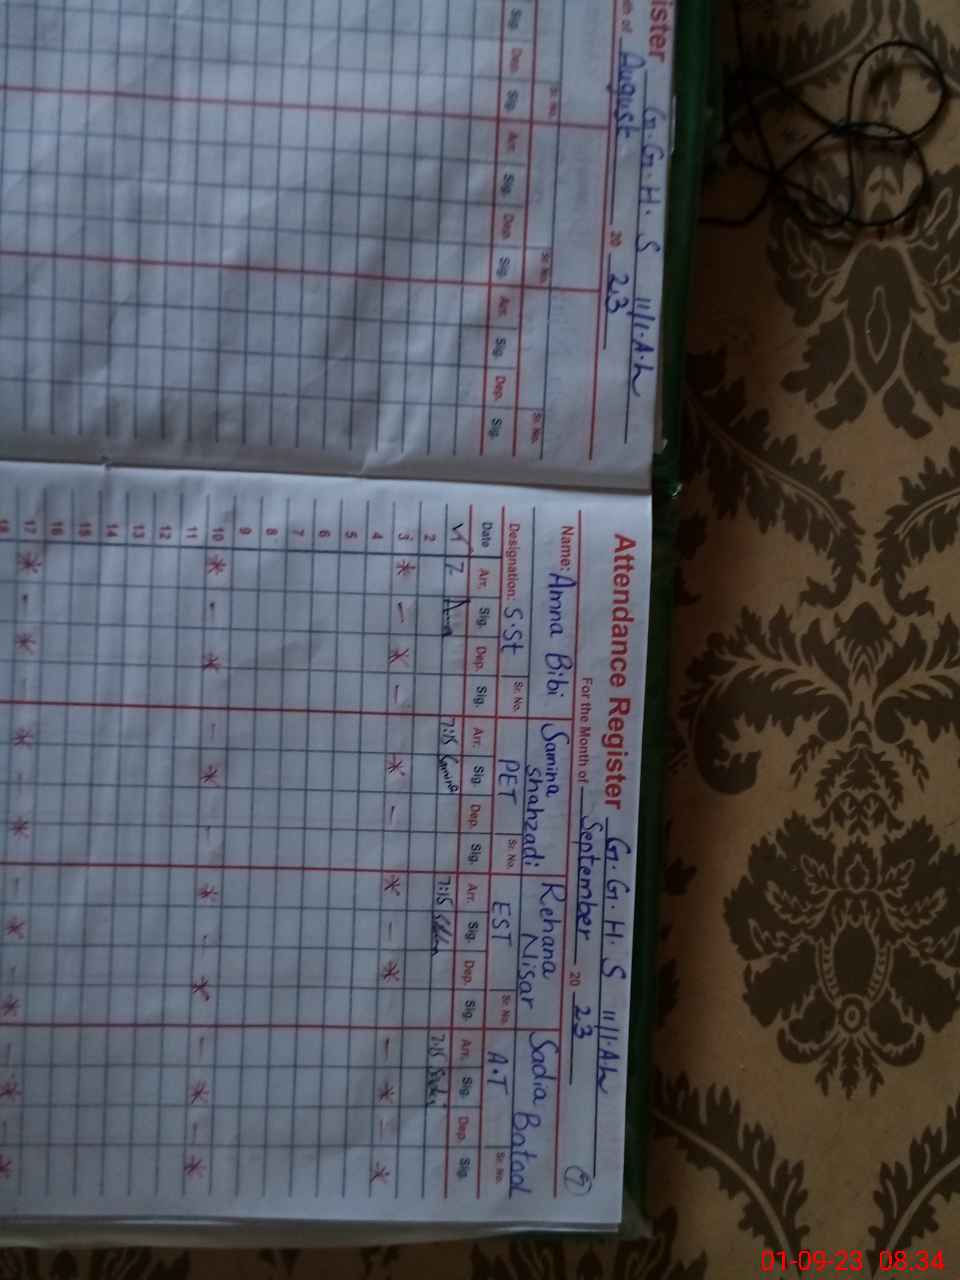 ister G.G.H.S 11/1.A.L
th of August 20 23
Sr. No. Sr. No. Sr. No.
Sig. Dep. Sig. Arr. Sig. Dep. Sig. Arr. Sig. Dep. Sig.
Attendance Register G.G.H.S 11/1.A.L
For the Month of September 20 23
9
Name: Amna Bibi Samina Shahzadi Rehana Nisar Sadia Batool
Designation: S.St Sr. No. PET Sr. No. EST Sr. No. A.T Sr. No.
Date Arr. Sig. Dep. Sig. Arr. Sig. Dep. Sig. Arr. Sig. Dep. Sig. Arr. Sig. Dep. Sig.
7 7:15 Samina 7:15 7:15
2
3
4
5
6
7
8
9
10
11
12
13
14
15
16
17
18
01-09-23 08:34